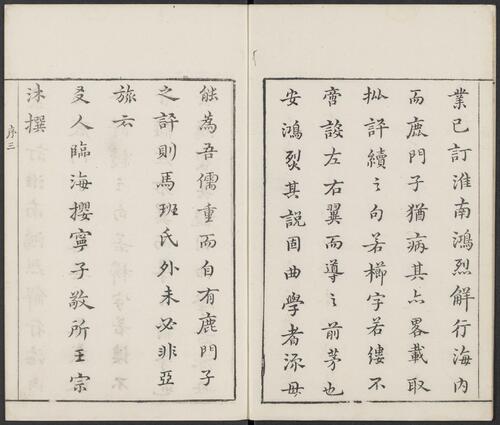 業已訂淮南鴻烈解行海内
而鹿門子猶病其亦畧載取
批評續之句若櫛字若縷不
啻談左右翼而導之前茅也
安鴻烈其說固曲學者派毋
能為吾儒重而自有鹿門子
之評則馬班氏外未必非亞
旅云
友人臨海攖寧子敬所王宗
沐撰
序三